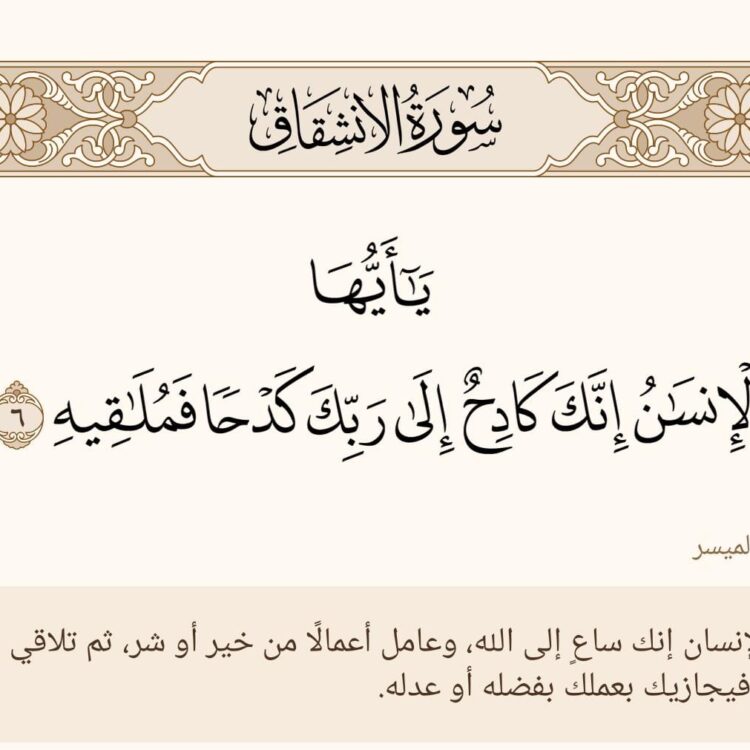 سُورَةُ الِانشِقَاقِ
يَـٰٓأَيُّهَا
لْإِنسَـٰنُ إِنَّكَ كَادِحٌ إِلَىٰ رَبِّكَ كَدْحًا فَمُلَـٰقِيهِ ٦
لميسر
لإنسان إنك ساعٍ إلى الله، وعامل أعمالًا من خير أو شر، ثم تلاقي
فيجازيك بعملك بفضله أو عدله.